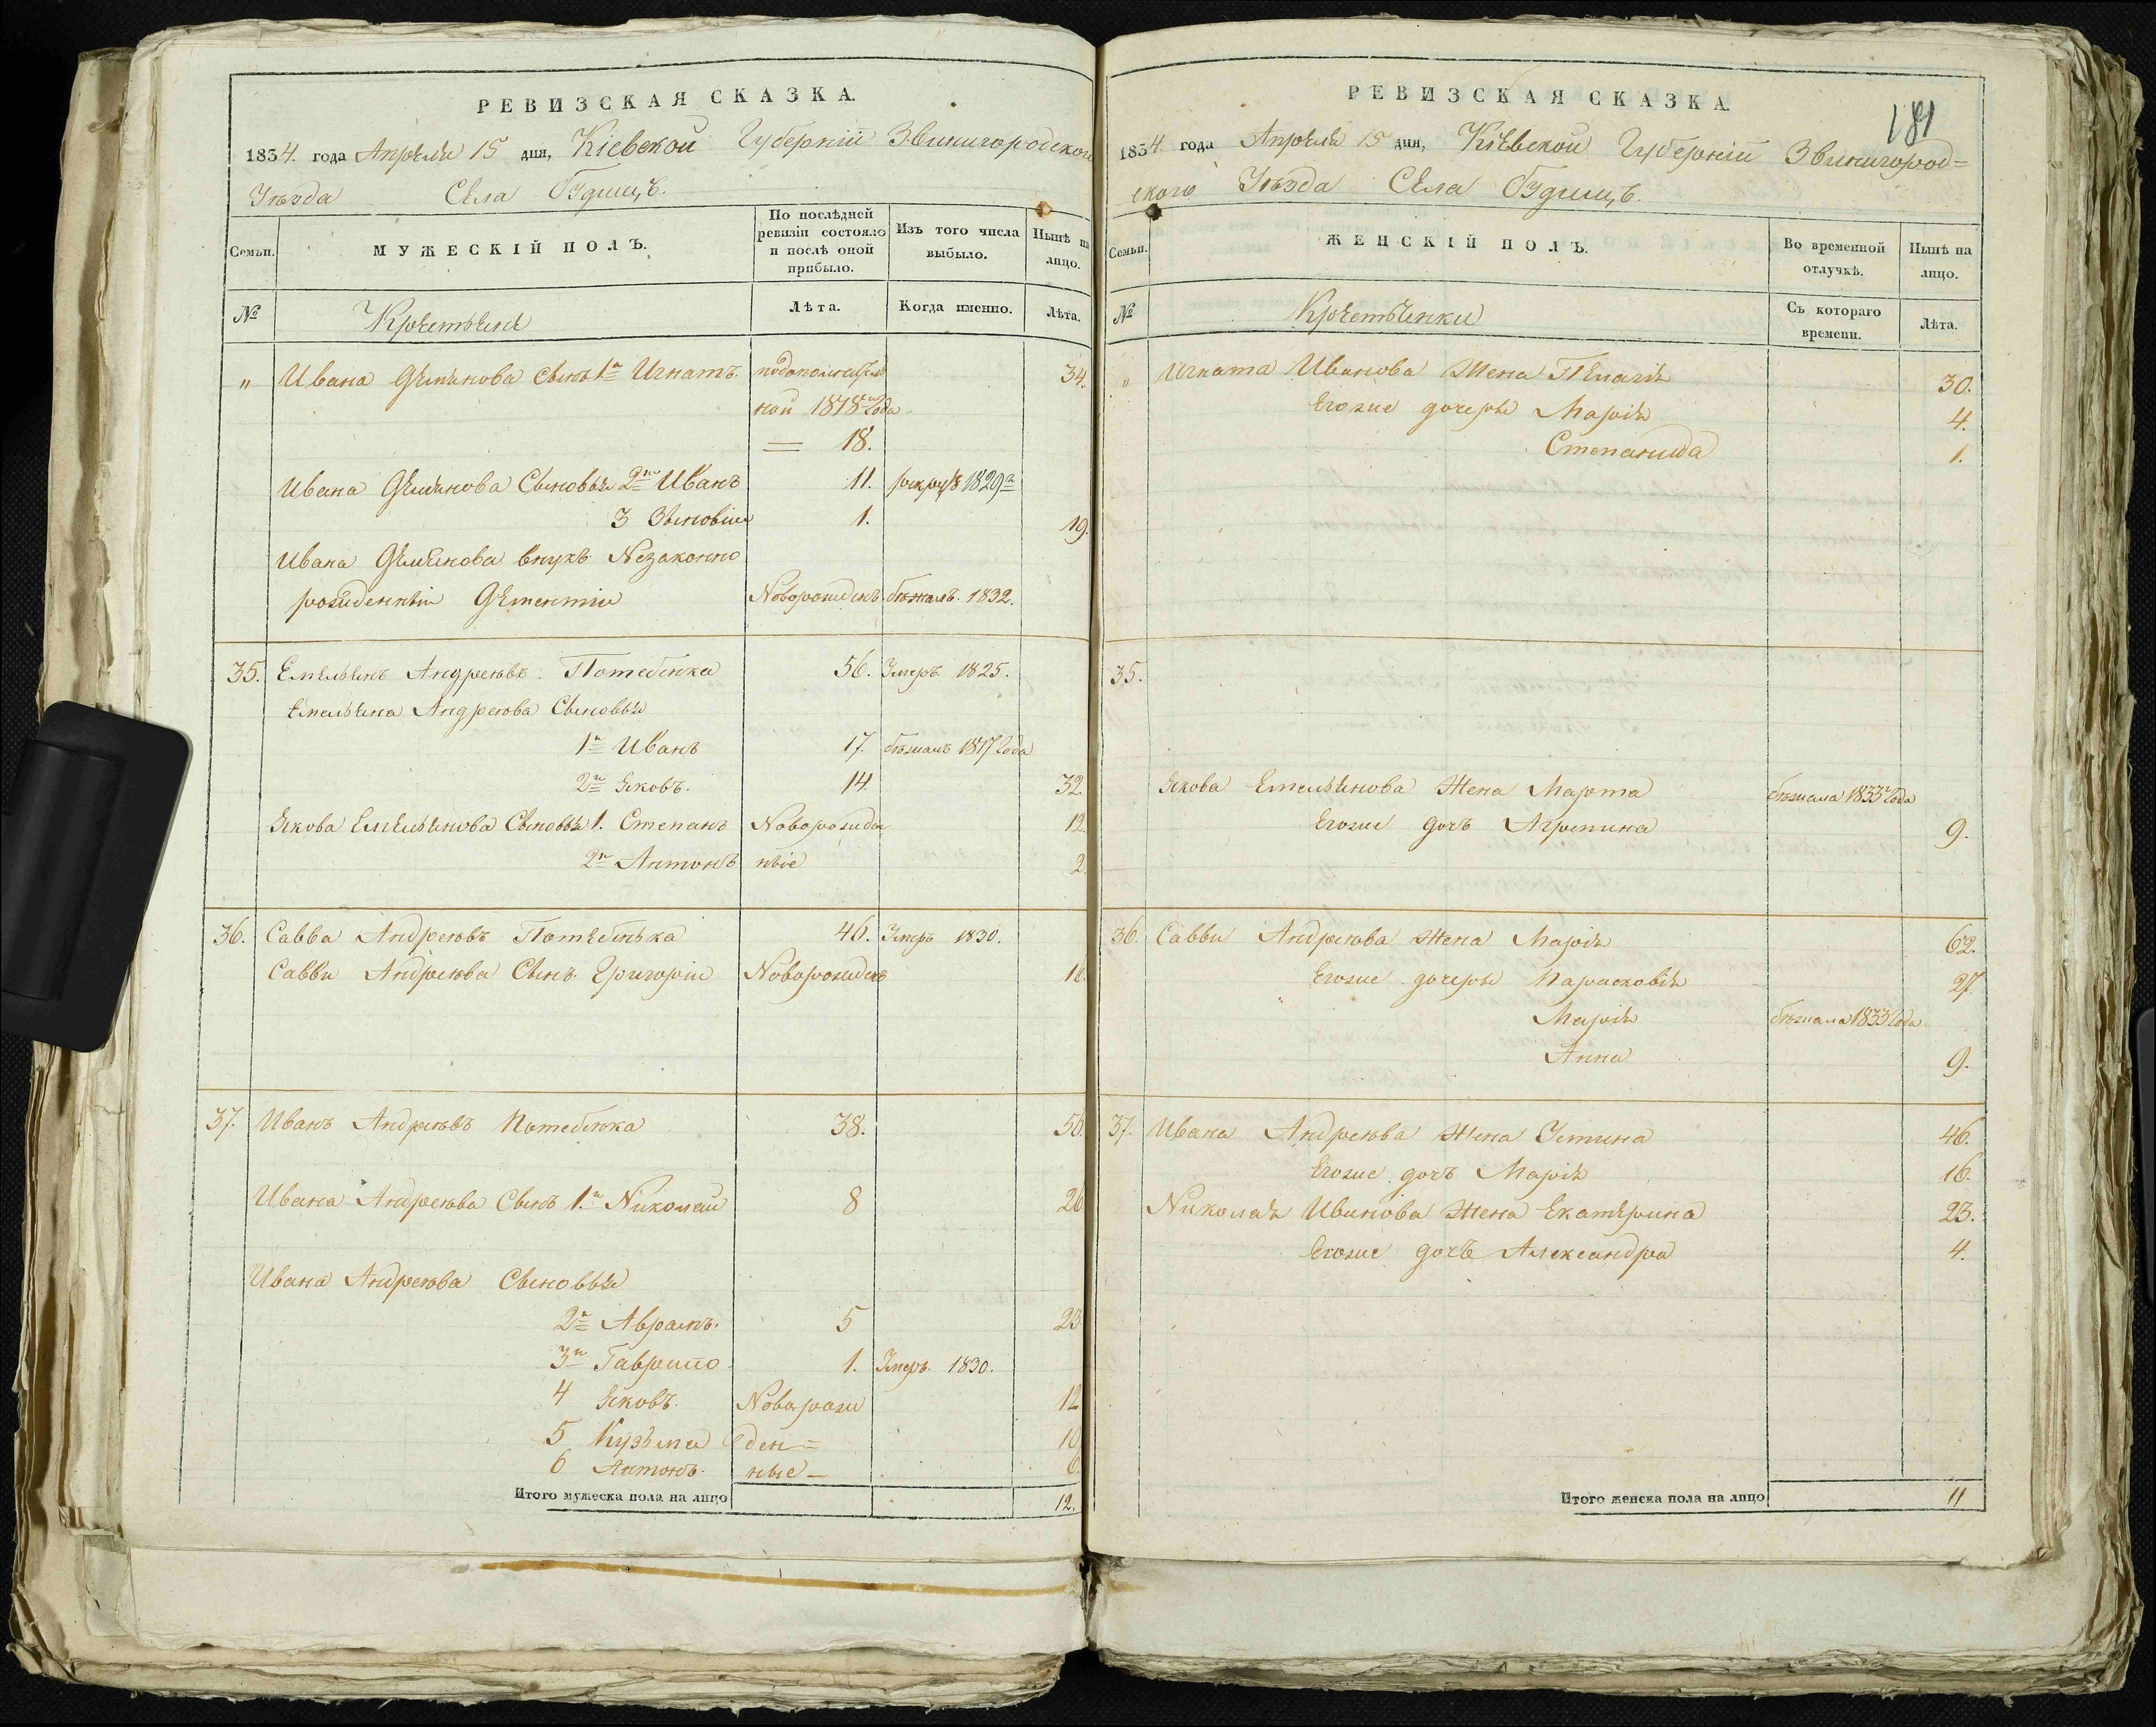 РЕВИЗСКАЯ СКАЗКА.
1834. года Апреля 15 дня, Кіевской Губерніи Звенигородского
Уѣзда Села Будищъ.
Семьи.
МУЖЕСКІЙ ПОЛЪ.
По послѣдней ревизіи состояло и послѣ оной прибыло.
Изъ того числа выбыло.
Нынѣ на лицо.
№
Крестьяне
Лѣта.
Когда именно.
Лѣта.
" Ивана Демьянова Сынъ 1й Игнатъ. 34.
ной 1818го Года
= 18.
Ивана Демьянова Сыновья 2й Иванъ 11. рекрутъ 1829го
3 Зѣновій 1. 19.
Ивана Демьянова внукъ Незаконно
рожденный Дементій Новорожденъ бѣжалъ. 1832.
35. Емельянъ Андреювъ Потебенка 56. Умеръ 1825.
Емельяна Андреюва Сыновья
1й Иванъ 17. бѣжалъ 1817 Года
2й Яковъ. 14. 32.
Якова Емельянова Сыновья 1. Степанъ Новорожден 12.
2й Антонъ ные 2.
36. Савва Андреювъ Потебенька 46. Умеръ 1830.
Саввы Андреюва Сынъ Григорій Новорожденъ
37. Иванъ Андреювъ Потебенка 38. 56.
Ивана Андреюва Сынъ 1.й Николай 8 26
Ивана Андреюва Сыновья
2й Аврамъ. 5 23
3й Гаврило 1. Умеръ. 1830.
4 Яковъ. Новорож 12
5 Кузьма ден= 10
6 Антонъ. ные — 6.
Итого мужеска пола на лицо 12.
РЕВИЗСКАЯ СКАЗКА.
181
1834 года Апреля 15 дня, Кіевской Губерніи Звенигород=
ского Уѣзда Села Будищъ.
Семьи.
ЖЕНСКІЙ ПОЛЪ.
Во временной отлучкѣ.
Нынѣ на лицо.
№
Крестьянки
Съ котораго времени.
Лѣта.
" Игната Иванова Жена Пелагія 30.
Егоже дочери Марія 4.
Степанида 1.
35.
Якова Емельянова Жена Марта бѣжала 1833 Года
Егоже дочь Агрипина 9.
36. Саввы Андреюва Жена Марія 62.
Егоже дочери Парасковія 27.
Марія бѣжала 1833 Года
Анна 9.
37. Ивана Андреюва Жена Устина 46.
Егоже дочь Марія 16.
Николая Иванова Жена Екатерина 23.
Егоже дочь Александра 4.
Итого женска пола на лицо 11